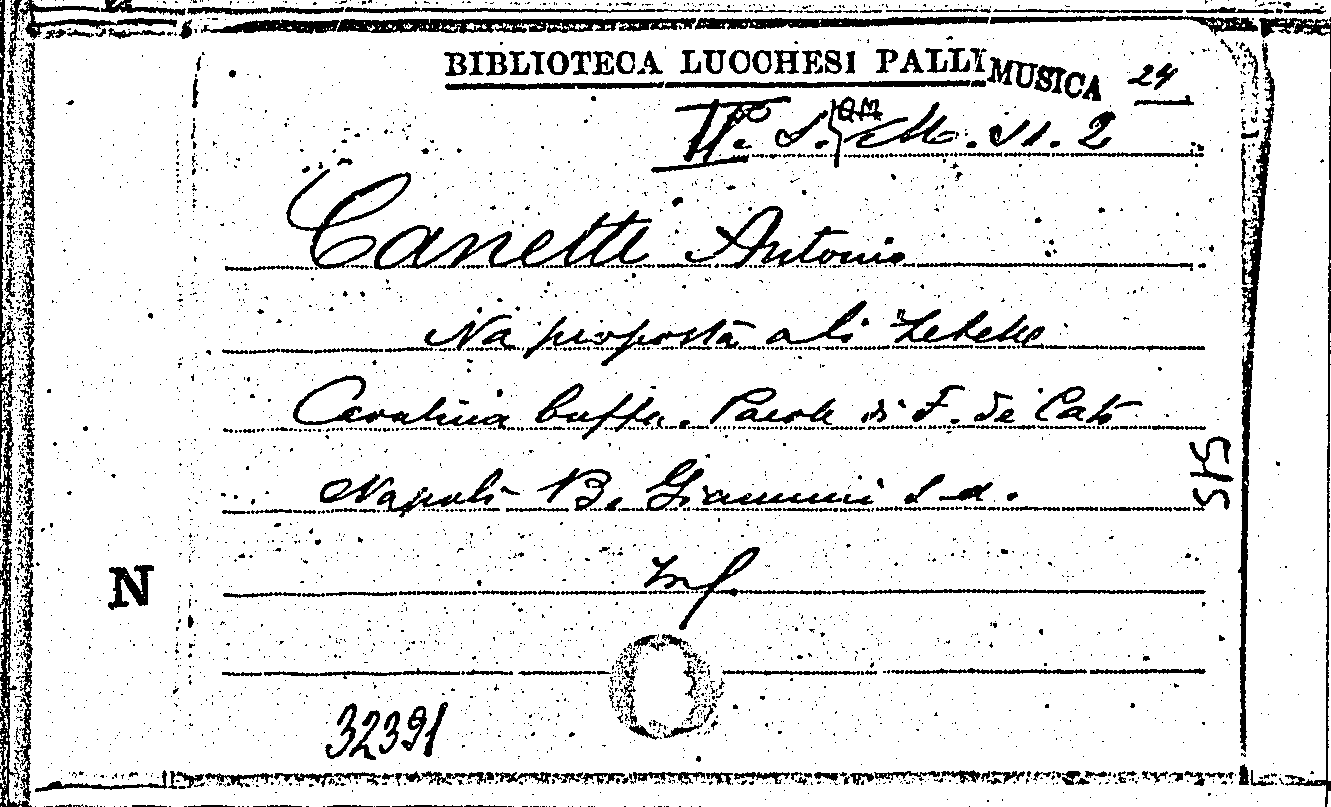 BIBLIOTECA LUCCHESI PALLI MUSICA 24
II. S. Q.M. 51. 2
Canetti Antonio
Na proposta a li Zetelle
Cavatina buffa. Parole di F. de Cato
Napoli B. Giannini s. d.
Inf.
515
N
32391